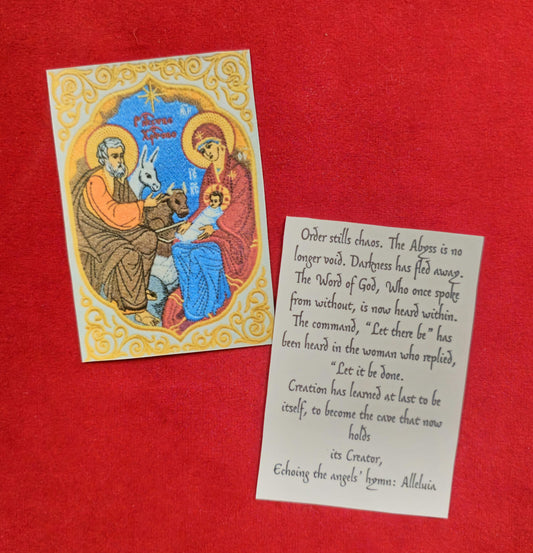 Order stills chaos. The Abyss is no
longer void. Darkness has fled away.
The Word of God, Who once spoke
from without, is now heard within.
The command, “Let there be” has
been heard in the woman who replied,
“Let it be done.
Creation has learned at last to be
itself, to become the cave that now
holds
its Creator,
Echoing the angels’ hymn: Alleluia